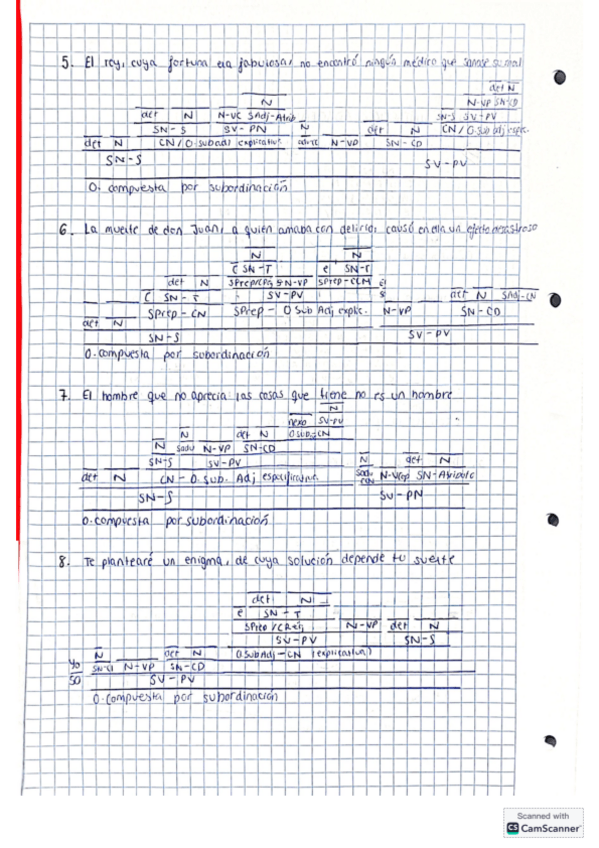 5. El rey, cuya fortuna era fabulosa, no encontró ningún médico que sanase su mal
det N
N N-VP SN-CD
det N N-VC SAdj-Atrib SN-S SV-PV
SN-S SV-PN N det N CN/O.sub adj espec.
det N CN/O.subadj explicativa N-VP SN-CD
SN-S SV-PV
O. compuesta por subordinación
6. La muerte de don Juan, a quien amaba con delirio, causó en ella un efecto desastroso
N N
E SN-T E SN-T
det N SPrep/CReg N-VP SPrep-CCM
E SN-T SV-PV det N SAdj-CN
SPrep-CN SPrep - O Sub Adj explic. N-VP SN-CD
det N
SN-S SV-PV
O. compuesta por subordinación
7. El hombre que no aprecia las cosas que tiene no es un hombre
N
nexo SV-PV
N det N O.sub-CN
N Sadv N-VP SN-CD
SN-S SV-PV N det N
det N CN - O. Sub. Adj especificativa N-VCop SN-Atributo
SN-S SV-PN
O. compuesta por subordinación
8. Te plantearé un enigma, de cuya solución depende tu suerte
det N
E SN-T
SPrep/CReg N-VP det N
SV-PV SN-S
N det N O SubAdj-CN (explicativa)
Yo SN-CI N-VP SN-CD
SO SV-PV
O. compuesta por subordinación
Scanned with
CS CamScanner